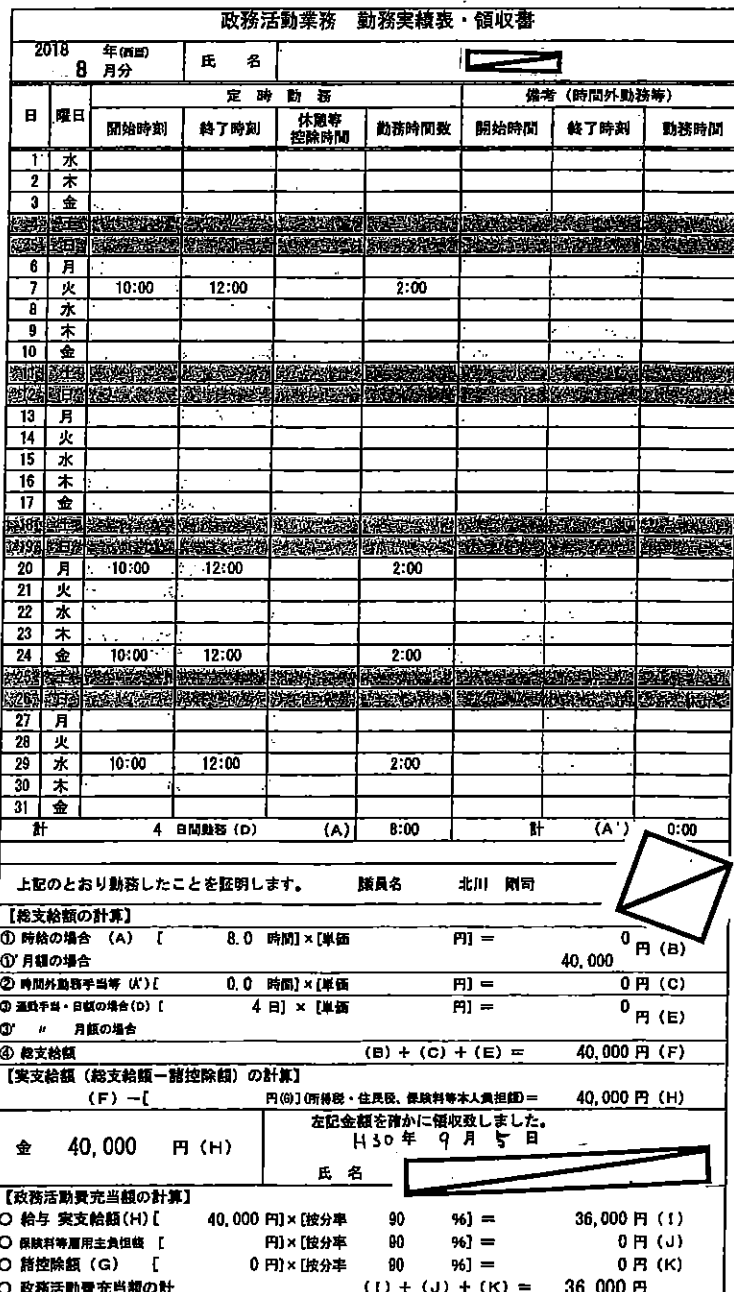 政務活動業務 勤務実績表・領収書
2018 年(西暦) 8 月分 氏 名
日 曜日 定 時 勤 務 備考(時間外勤務等)
開始時刻 終了時刻 休憩等控除時間 勤務時間数 開始時間 終了時刻 勤務時間
1 水
2 木
3 金
土
日
6 月
7 火 10:00 12:00 2:00
8 水
9 木
10 金
11 土
12 日
13 月
14 火
15 水
16 木
17 金
18 土
19 日
20 月 10:00 12:00 2:00
21 火
22 水
23 木
24 金 10:00 12:00 2:00
25 土
26 日
27 月
28 火
29 水 10:00 12:00 2:00
30 木
31 金
計 4 日間勤務(D) (A) 8:00 計 (A') 0:00
上記のとおり勤務したことを証明します。 議員名 北川 剛司
【総支給額の計算】
① 時給の場合 (A) [ 8.0 時間]×[単価 円] = 0 円 (B)
①' 月額の場合 40,000
② 時間外勤務手当等 (A')[ 0.0 時間]×[単価 円] = 0 円 (C)
③ 通勤手当・日額の場合(D) [ 4 日] × [単価 円] = 0 円 (E)
③' 〃 月額の場合
④ 総支給額 (B) + (C) + (E) = 40,000 円 (F)
【実支給額(総支給額-諸控除額)の計算】
(F) -[ 円(G)](所得税・住民税、保険料等本人負担額)= 40,000 円 (H)
金 40,000 円 (H) 左記金額を確かに領収致しました。
H30 年 9 月 5 日
氏 名
【政務活動費充当額の計算】
○ 給与 実支給額(H)[ 40,000 円]×[按分率 90 %] = 36,000 円 (I)
○ 保険料等雇用主負担額 [ 円]×[按分率 90 %] = 0 円 (J)
○ 諸控除額 (G) [ 0 円]×[按分率 90 %] = 0 円 (K)
○ 政務活動費充当額の計 (I) + (J) + (K) = 36,000 円